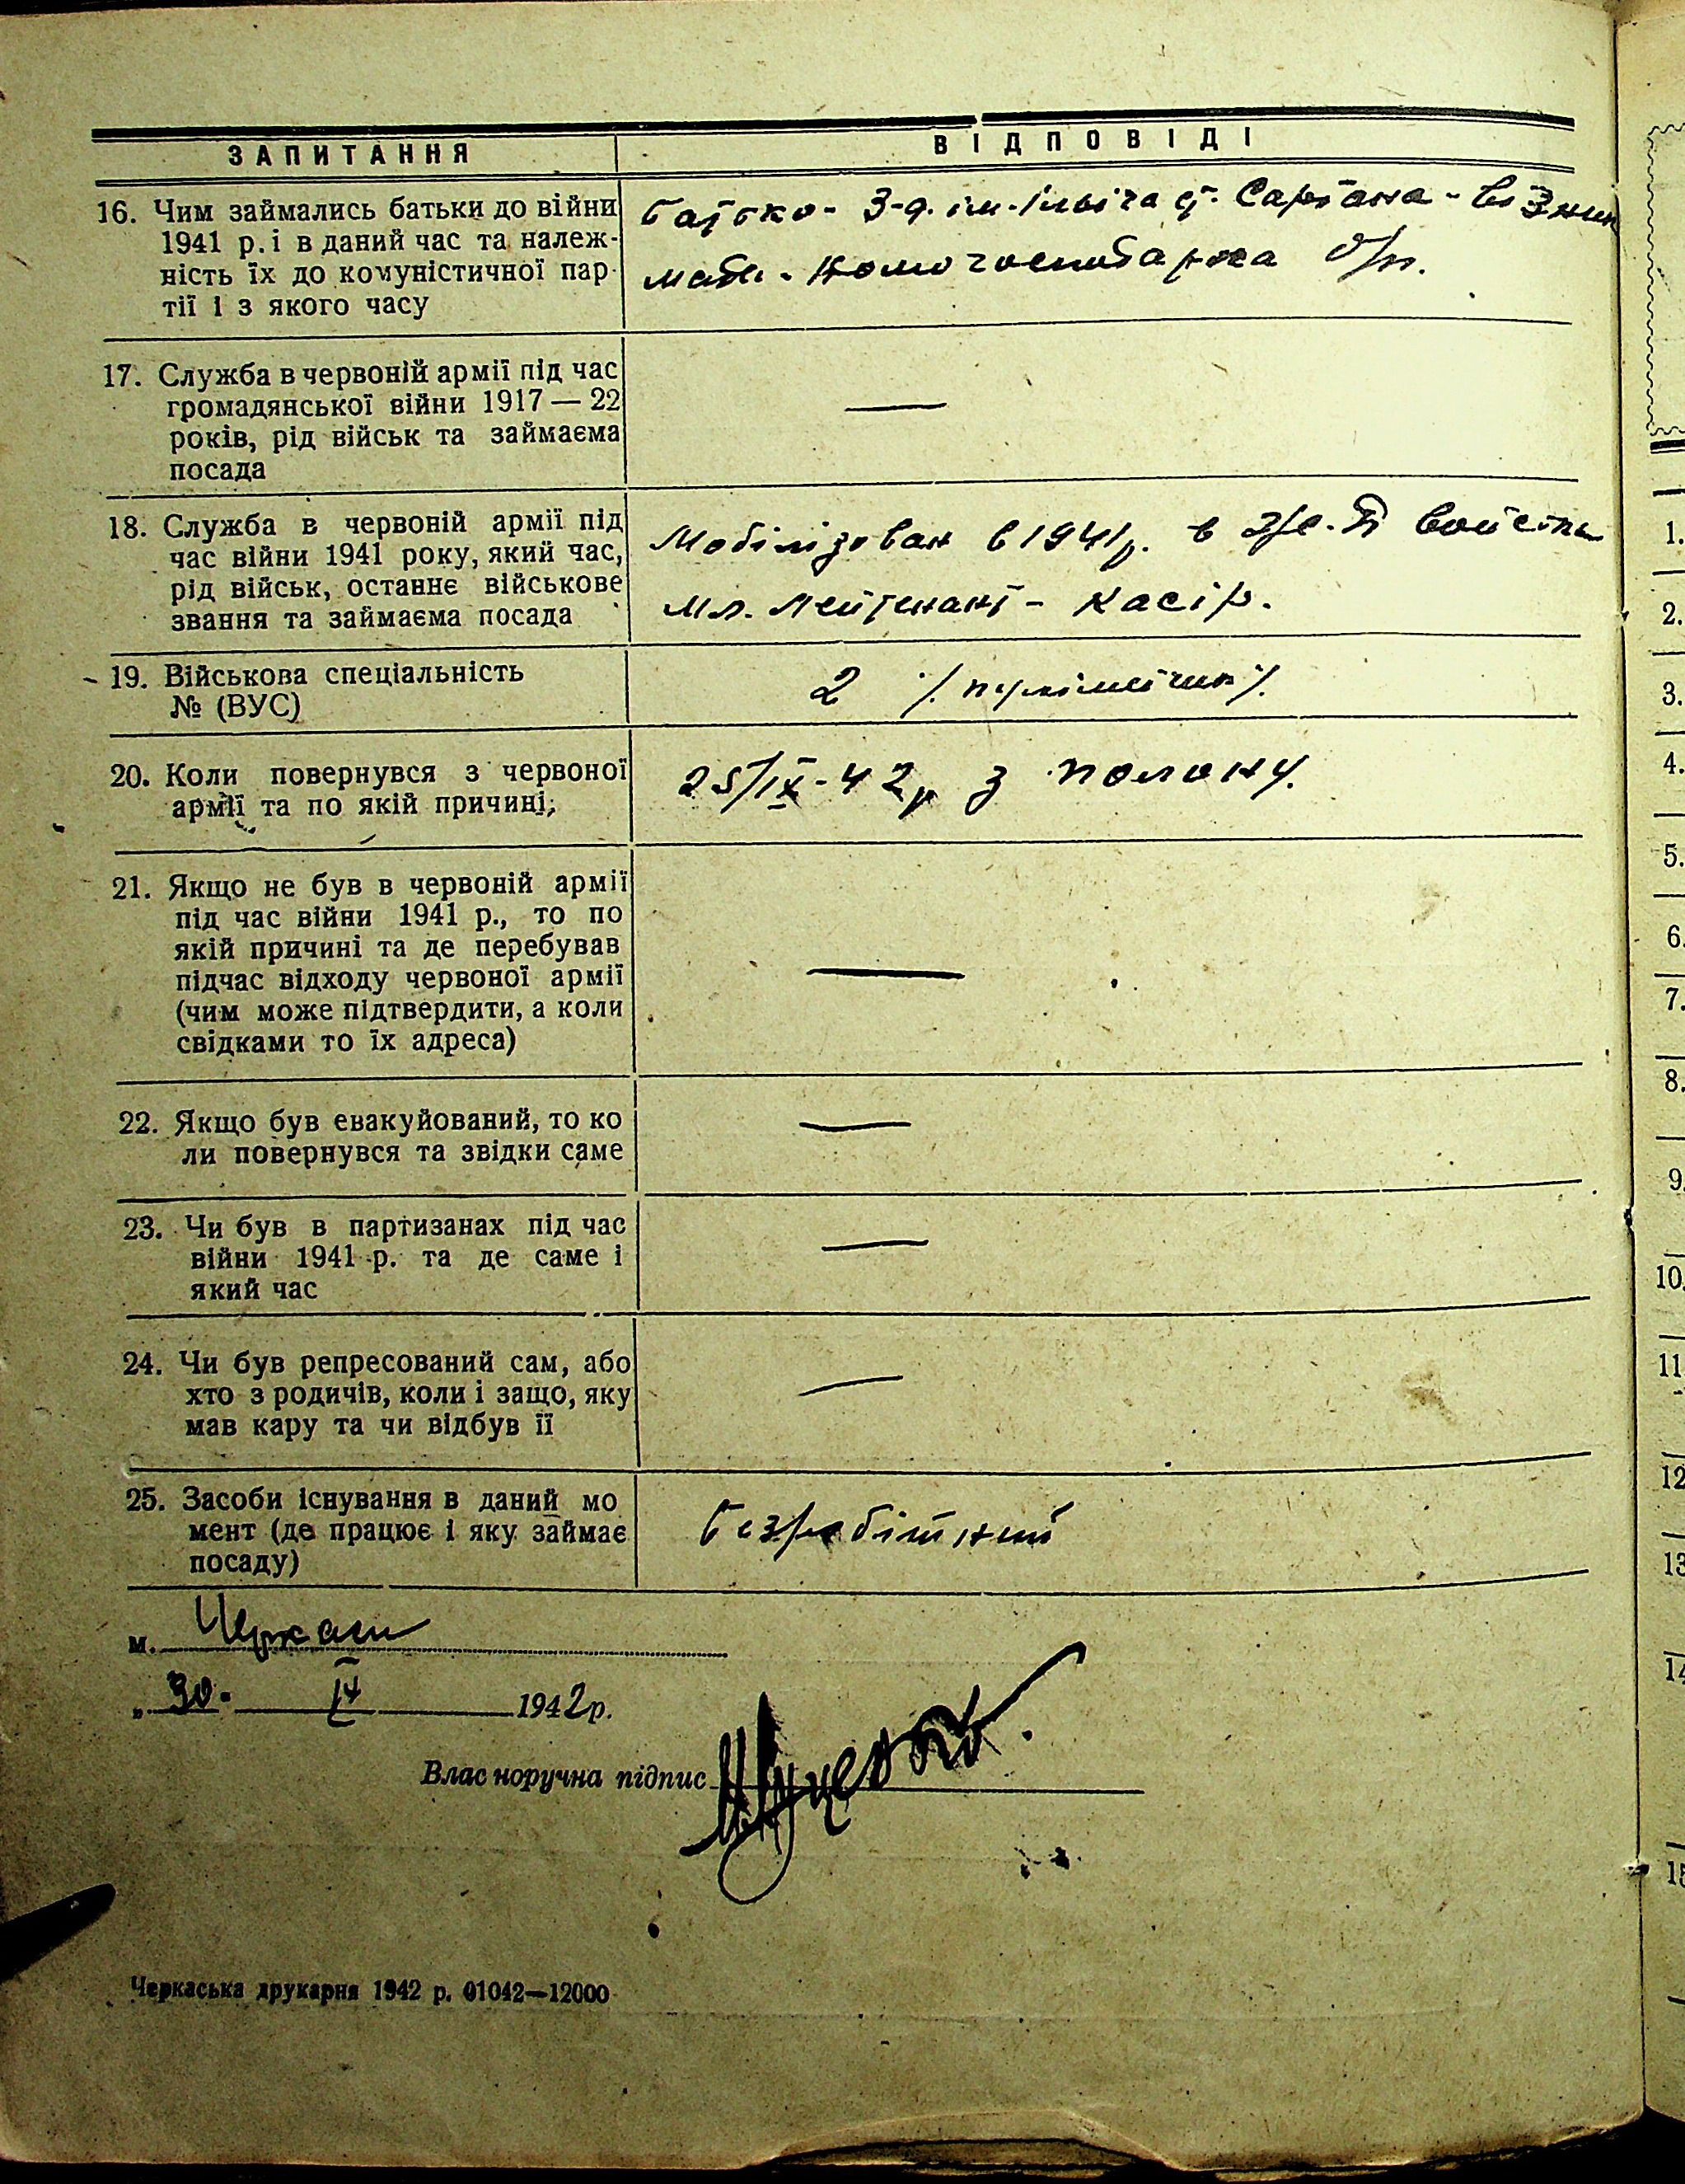 ЗАПИТАННЯ
ВІДПОВІДІ
16. Чим займались батьки до війни
1941 р. і в даний час та належ-
ність їх до комуністичної пар-
тії і з якого часу
батько - З-д. ім. Ілыіча ст. Сартана - візник
мати - домогосподарка б/п.
17. Служба в червоній армії під час
громадянської війни 1917 — 22
років, рід військ та займаєма
посада
—
18. Служба в червоній армії під
час війни 1941 року, який час,
рід військ, останнє військове
звання та займаєма посада
Мобілізован в 1941 р. в войська
Мл. Лейтенант - касір.
19. Військова спеціальність
№ (ВУС)
2
20. Коли повернувся з червоної
армії та по якій причині;
25/IX - 42 р з полону.
21. Якщо не був в червоній армії
під час війни 1941 р., то по
якій причині та де перебував
підчас відходу червоної армії
(чим може підтвердити, а коли
свідками то їх адреса)
—
22. Якщо був евакуйований, то ко
ли повернувся та звідки саме
—
23. Чи був в партизанах під час
війни 1941 р. та де саме і
який час
—
24. Чи був репресований сам, або
хто з родичів, коли і защо, яку
мав кару та чи відбув її
—
25. Засоби існування в даний мо
мент (де працює і яку займає
посаду)
безробітний
м. Черкаси
„ 30. 1942 р.
Влас норучна підпис
Черкаська друкарня 1942 р. 01042—12000
1.
2.
3.
4.
5.
6.
7.
8.
9.
10.
11
12
13
14
15